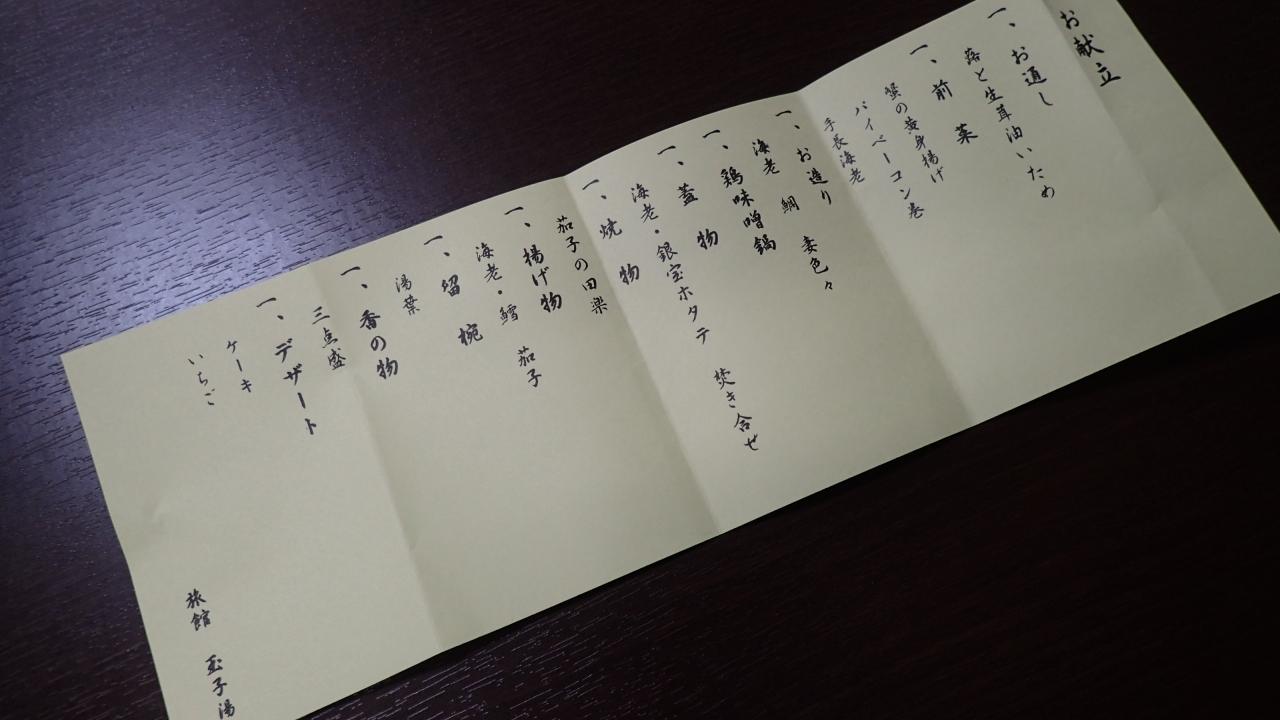 お献立
一、お通し
蕗と生茸油いため
一、前菜
蟹の黄身揚げ
パイベーコン巻
手長海老
一、お造り 妻色々
海老 鯛
一、鶏味噌鍋
一、蓋物
海老・銀宝ホタテ 焚き合せ
一、焼物
茄子の田楽
一、揚げ物 茄子
海老・鱈
一、留椀
湯葉
一、香の物
三点盛
一、デザート
ケーキ
いちご
旅館 玉子湯